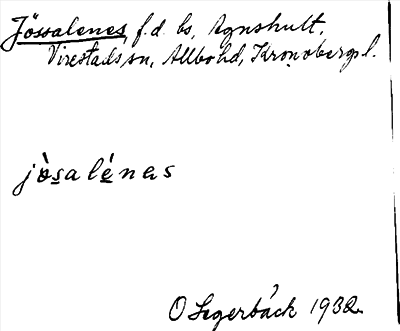 Jössalenes f.d. bs, Agnshult,
Virestads sn, Allbo hd, Kronobergs l.
jòsalénas
O Segerbäck 1932